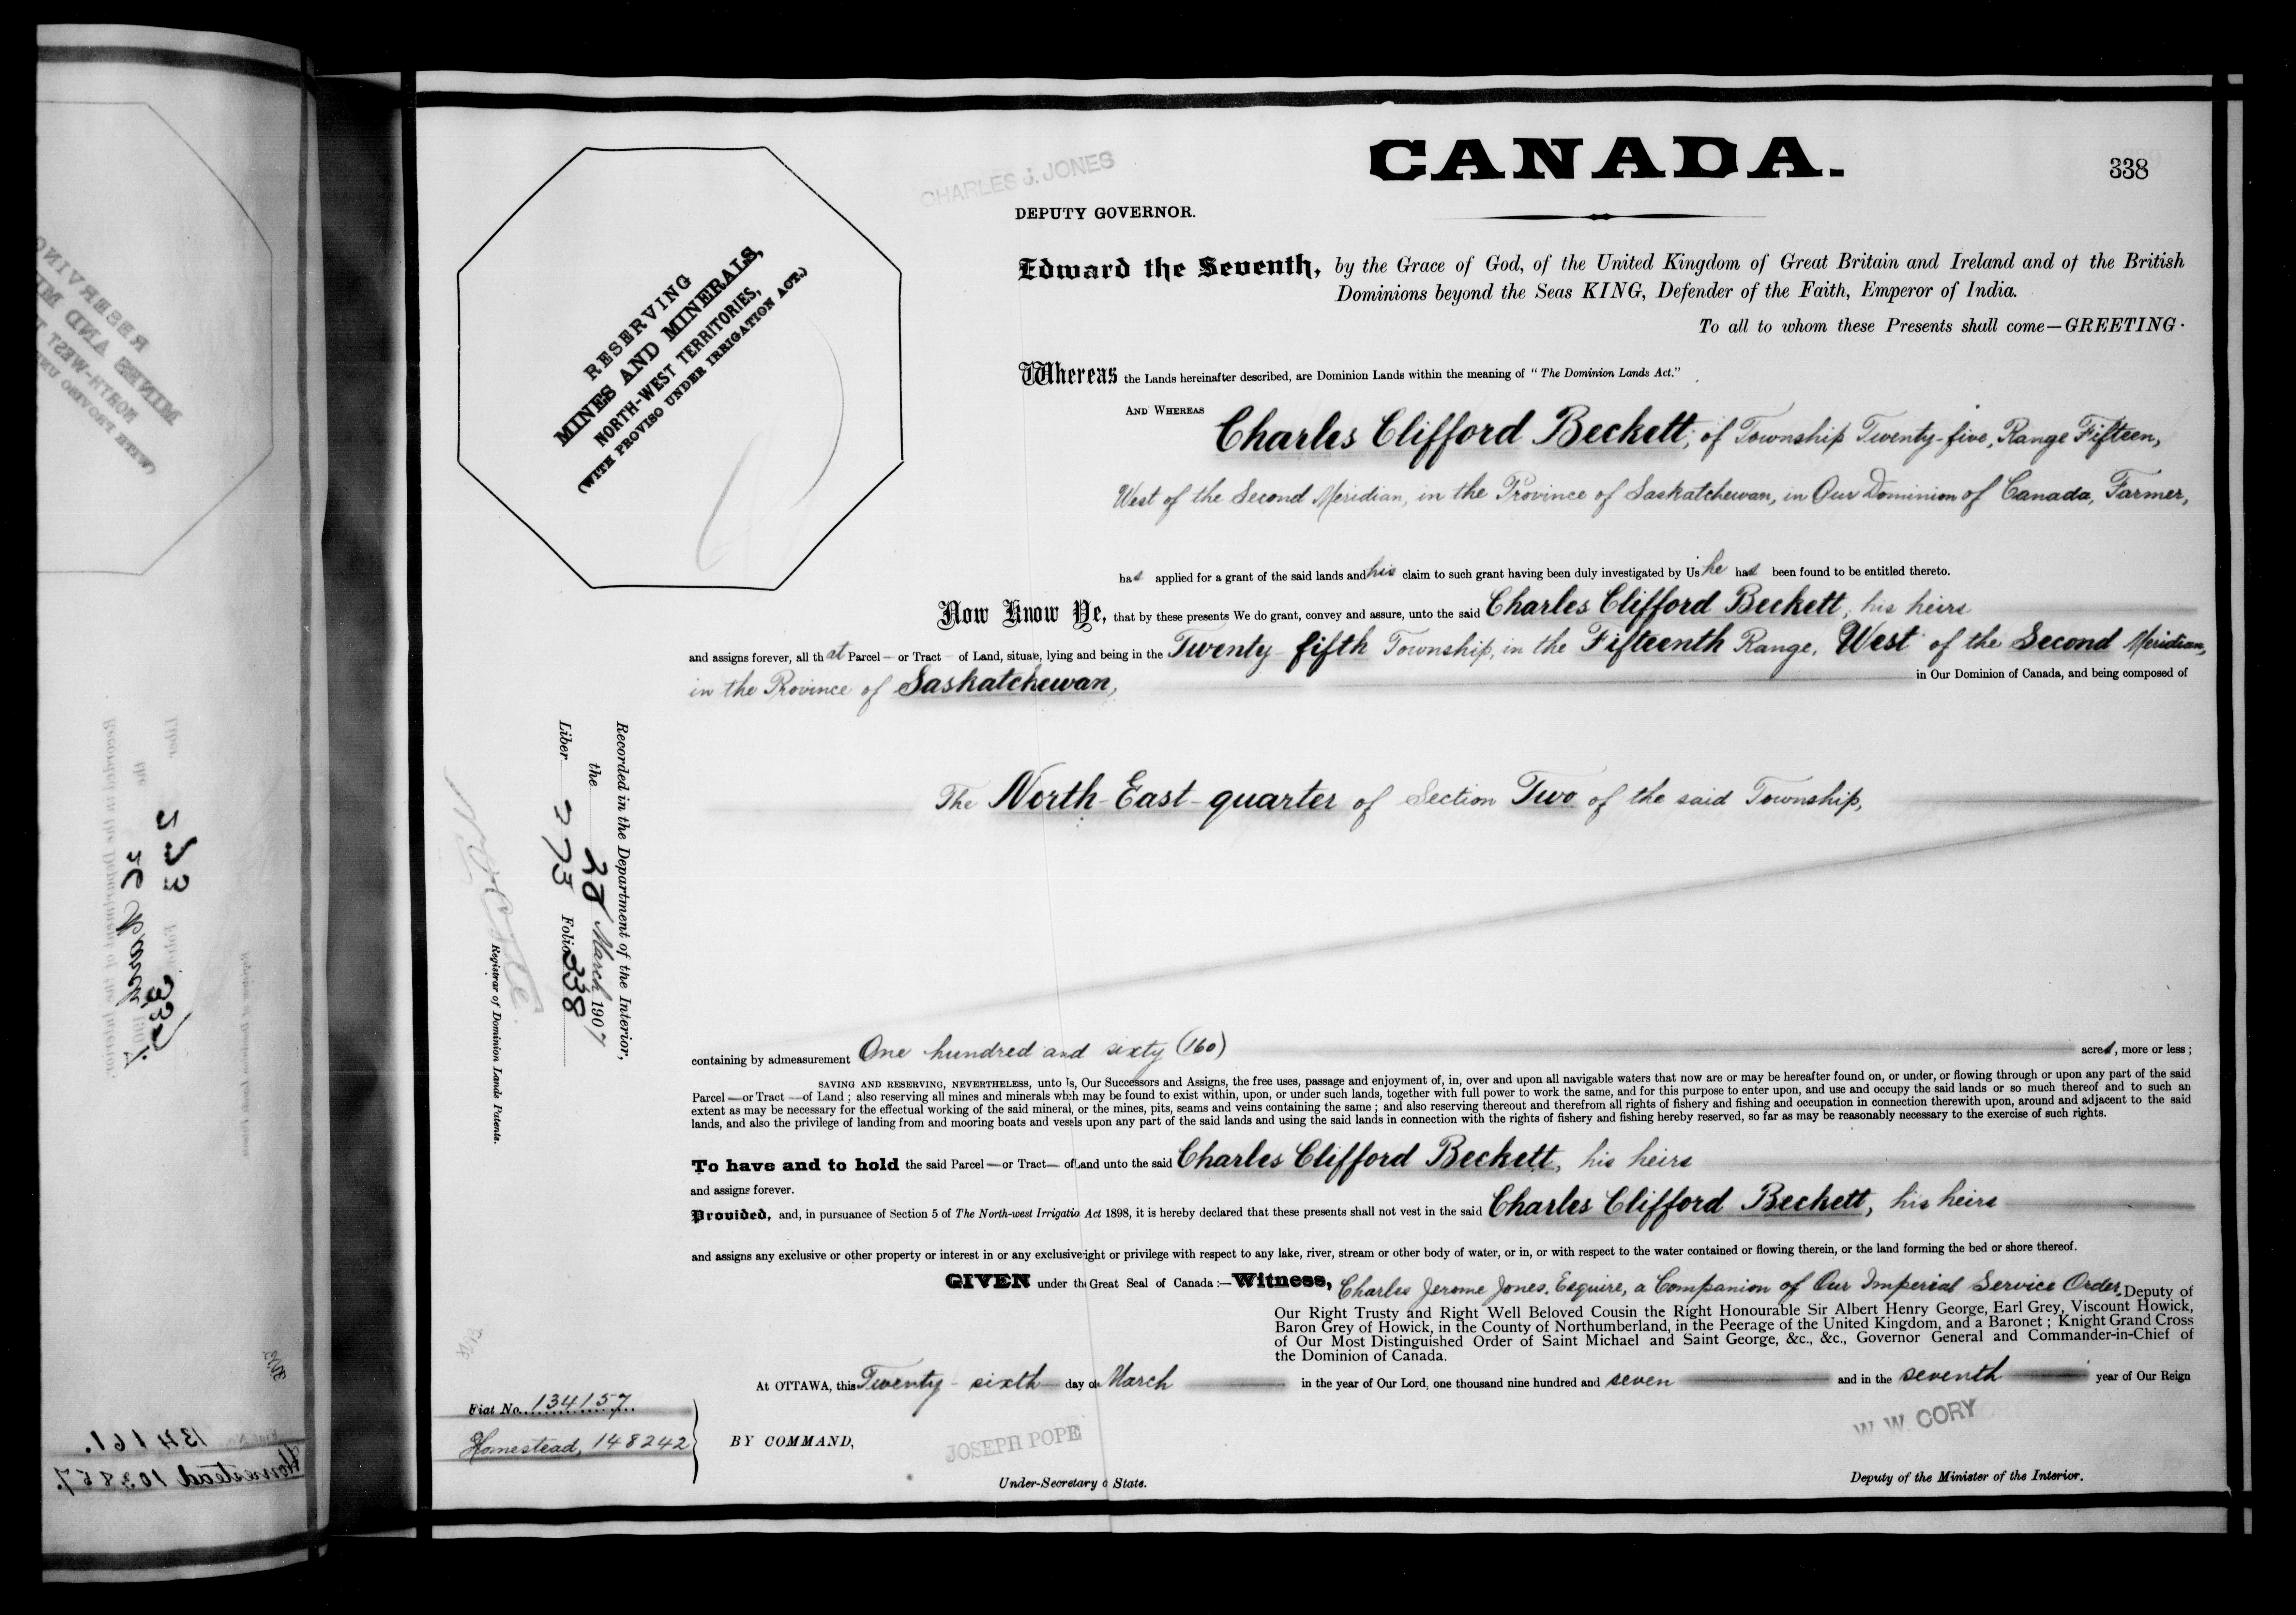 CANADA.
338
CHARLES J. JONES
DEPUTY GOVERNOR.
RESERVING
MINES AND MINERALS,
NORTH-WEST TERRITORIES,
(WITH PROVISO UNDER IRRIGATION ACT.)
Edward the Seventh, by the Grace of God, of the United Kingdom of Great Britain and Ireland and of the British
Dominions beyond the Seas KING, Defender of the Faith, Emperor of India.
To all to whom these Presents shall come—GREETING.
Whereas the Lands hereinafter described, are Dominion Lands within the meaning of "The Dominion Lands Act."
AND WHEREAS Charles Clifford Beckett, of Township Twenty-five, Range Fifteen,
West of the Second Meridian, in the Province of Saskatchewan, in Our Dominion of Canada, Farmer,
has applied for a grant of the said lands and his claim to such grant having been duly investigated by Us he has been found to be entitled thereto.
Now Know Ye, that by these presents We do grant, convey and assure, unto the said Charles Clifford Beckett, his heirs
and assigns forever, all that Parcel — or Tract of Land, situate, lying and being in the Twenty-fifth Township, in the Fifteenth Range, West of the Second Meridian,
in the Province of Saskatchewan, in Our Dominion of Canada, and being composed of
The North-East-quarter of Section Two of the said Township,
Recorded in the Department of the Interior,
the 28 March 1907
Liber 273 Folio 338
Registrar of Dominion Lands Patents.
containing by admeasurement One hundred and sixty (160) acres, more or less;
SAVING AND RESERVING, NEVERTHELESS, unto Us, Our Successors and Assigns, the free uses, passage and enjoyment of, in, over and upon all navigable waters that now are or may be hereafter found on, or under, or flowing through or upon any part of the said
Parcel — or Tract — of Land; also reserving all mines and minerals which may be found to exist within, upon, or under such lands, together with full power to work the same, and for this purpose to enter upon, and use and occupy the said lands or so much thereof and to such an
extent as may be necessary for the effectual working of the said mineral, or the mines, pits, seams and veins containing the same; and also reserving thereout and therefrom all rights of fishery and fishing and occupation in connection therewith upon, around and adjacent to the said
lands, and also the privilege of landing from and mooring boats and vessels upon any part of the said lands and using the said lands in connection with the rights of fishery and fishing hereby reserved, so far as may be reasonably necessary to the exercise of such rights.
To have and to hold the said Parcel — or Tract — of Land unto the said Charles Clifford Beckett, his heirs
and assigns forever.
Provided, and, in pursuance of Section 5 of The North-west Irrigatio Act 1898, it is hereby declared that these presents shall not vest in the said Charles Clifford Beckett, his heirs
and assigns any exclusive or other property or interest in or any exclusive ight or privilege with respect to any lake, river, stream or other body of water, or in, or with respect to the water contained or flowing therein, or the land forming the bed or shore thereof.
GIVEN under the Great Seal of Canada:—Witness, Charles Jerome Jones, Esquire, a Companion of Our Imperial Service Order, Deputy of
Our Right Trusty and Right Well Beloved Cousin the Right Honourable Sir Albert Henry George, Earl Grey, Viscount Howick,
Baron Grey of Howick, in the County of Northumberland, in the Peerage of the United Kingdom, and a Baronet; Knight Grand Cross
of Our Most Distinguished Order of Saint Michael and Saint George, &c., &c., Governor General and Commander-in-Chief of
the Dominion of Canada.
At OTTAWA, this Twenty-sixth day of March in the year of Our Lord, one thousand nine hundred and seven and in the seventh year of Our Reign
Fiat No. 134157.
Homestead, 148242
BY COMMAND,
JOSEPH POPE
Under-Secretary o State.
W. W. CORY
Deputy of the Minister of the Interior.